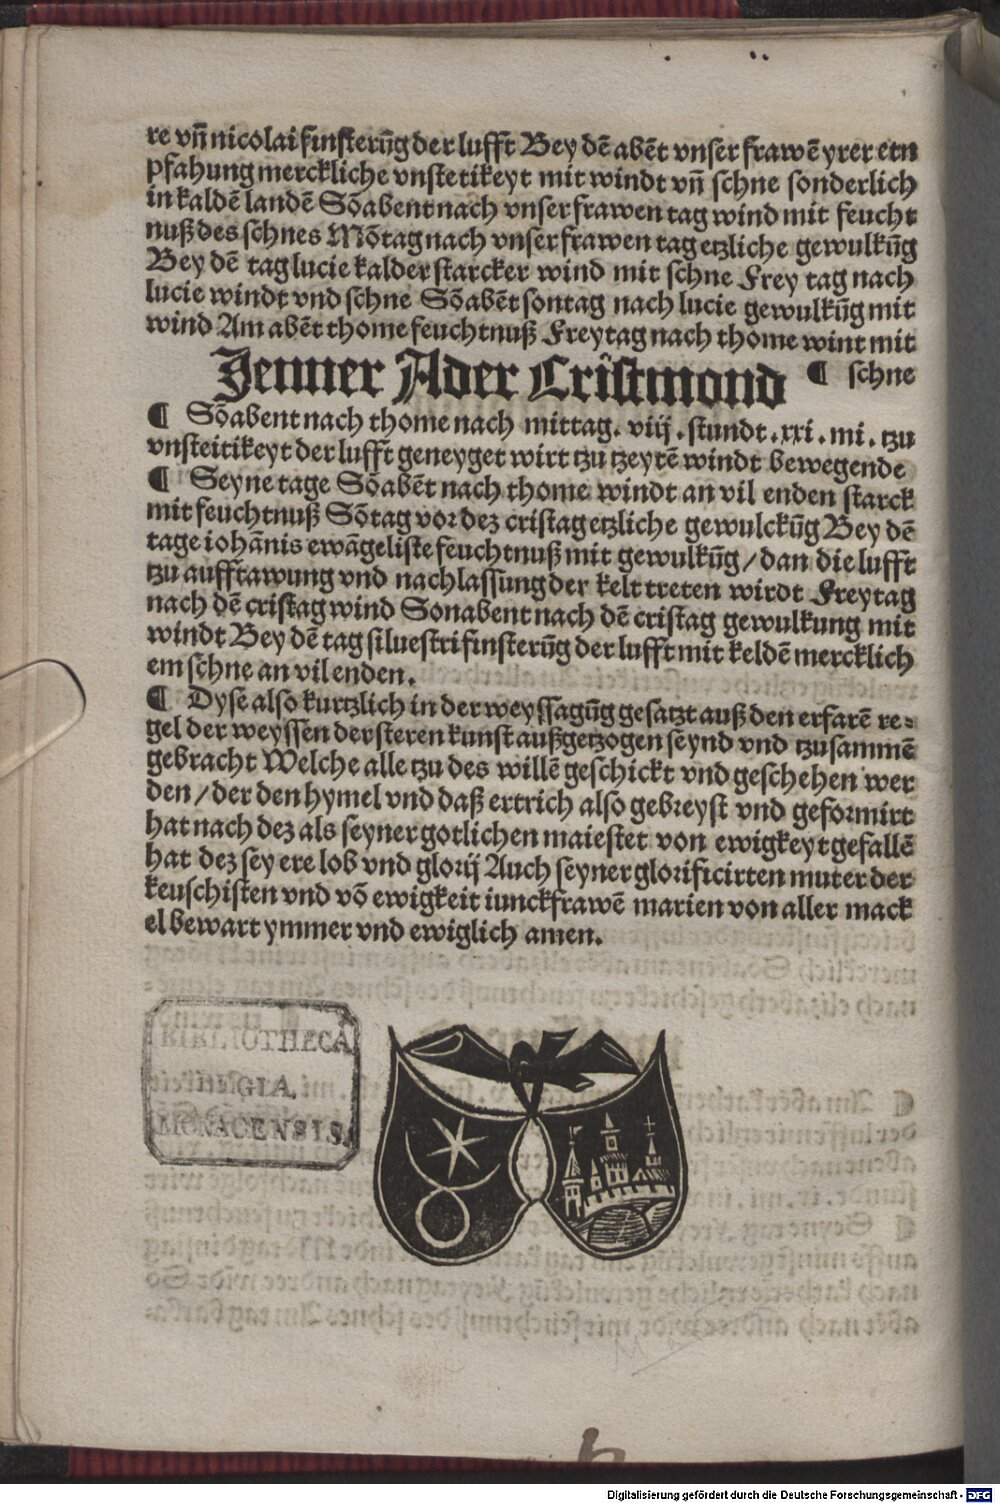 re vn̄ nicolai finsterūg der lufft Bey dē abēt vnser frawē yrer etn
pfahung merckliche vnstetikeyt mit windt vn̄ schne sonderlich
in kaldē landē Sōabent nach vnser frawen tag wind mit feucht
nuß des schnes Mōtag nach vnser frawen tag etzliche gewulkūg
Bey dē tag lucie kalder starcker wind mit schne Frey tag nach
lucie windt vnd schne Sōabēt sontag nach lucie gewulkūg mit
wind Am abēt thome feuchtnuß Freytag nach thome wint mit
Jenner Ader Cristmond ¶ schne
¶ Sōabent nach thome nach mittag. viij. stundt. xxi. mi. tzu
vnsteitikeyt der lufft geneyget wirt tzu tzeytē windt bewegende
¶ Seyne tage Sōabēt nach thome windt an vil enden starck
mit feuchtnuß Sōtag vor dez cristag etzliche gewulckūg Bey dē
tage iohānis ewāgeliste feuchtnuß mit gewulkūg / dan die lufft
tzu aufftawung vnd nachlassung der kelt treten wirdt Freytag
nach dē cristag wind Sonabent nach dē cristag gewulkung mit
windt Bey dē tag siluestri finsterūg der lufft mit keldē mercklich
em schne an vil enden.
¶ Dyse also kurtzlich in der weyssagūg gesatzt auß den erfarē re=
gel der weyssen der steren kunst außgetzogen seynd vnd tzusammē
gebracht Welche alle tzu des willē geschickt vnd geschehen wer
den / der den hymel vnd daß ertrich also gebreyst vnd geformirt
hat nach dez als seyner gotlichen maiestet von ewigkeyt gefallē
hat dez sey ere lob vnd glorij Auch seyner glorificirten muter der
keuschisten vnd vō ewigkeit iunckfrawē marien von aller mack
el bewart ymmer vnd ewiglich amen.
BIBLIOTHECA
REGIA
MONACENSIS.
Digitalisierung gefördert durch die Deutsche Forschungsgemeinschaft - DFG